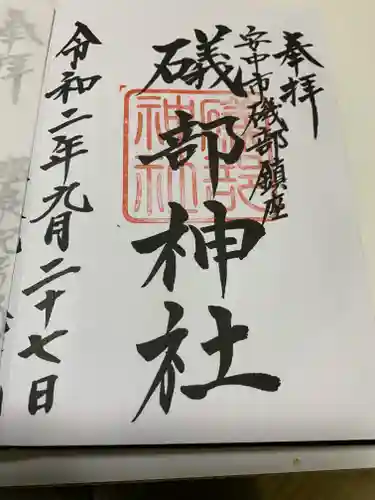 奉拝
安中市磯部鎮座
礒部神社
令和二年九月二十七日
奉拝